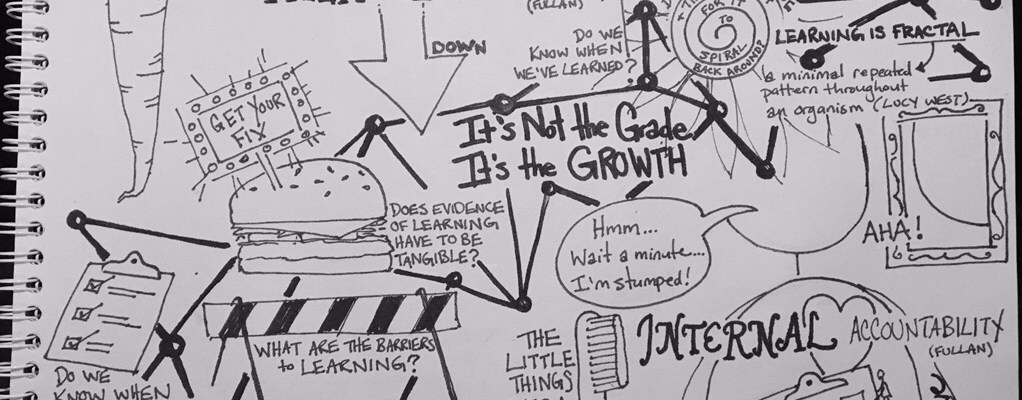 (FULLAN)
DOWN
DO WE
KNOW WHEN
WE'VE LEARNED?
FOR IT
TO
SPIRAL
BACK AROUND?
LEARNING IS FRACTAL
a minimal repeated
pattern throughout
an organism (LUCY WEST)
GET YOUR
FIX
It's Not the Grade
It's the GROWTH
DOES EVIDENCE
OF LEARNING
HAVE TO BE
TANGIBLE?
Hmm...
Wait a minute...
I'm stumped!
AHA!
WHAT ARE THE BARRIERS
to LEARNING?
THE
LITTLE
THINGS
INTERNAL ACCOUNTABILITY
(FULLAN)
DO WE
KNOW WHEN